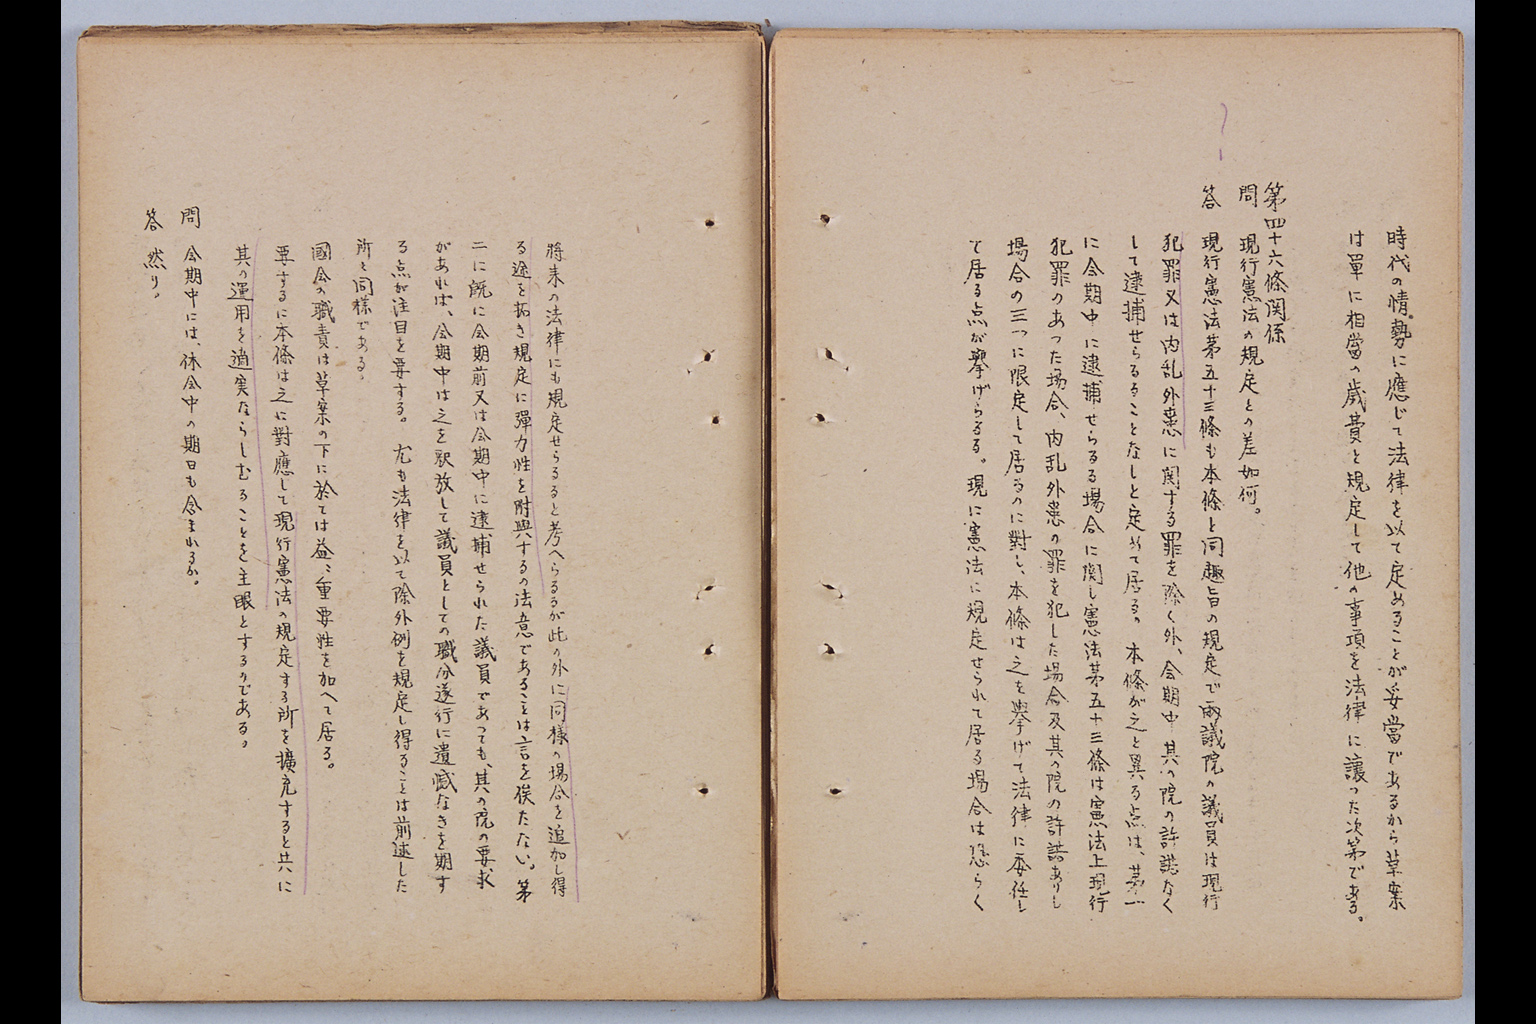 時代の情勢に應じて法律を以て定めることが妥當であるから草案
は單に相當の歳費と規定して他の事項を法律に讓った次第である。
第四十六條関係
問　現行憲法の規定との差如何。
答　現行憲法第五十三條も本條と同趣旨の規定で両議院の議員は現行
犯罪又は内乱外患に関する罪を除く外、会期中其の院の許諾なく
して逮捕せらるることなしと定めて居る。本條が之と異る点は、第一
に会期中に逮捕せらるる場合に関し憲法第五十三條は憲法上現行
犯罪のあった場合、内乱外患の罪を犯した場合及其の院の許諾ありし
場合の三つに限定して居るのに對し、本條は之を擧げて法律に委任し
て居る点が擧げらるる。現に憲法に規定せられて居る場合は恐らく
將来の法律にも規定せらるると考へらるるが此の外に同様の場合を追加し得
る途を拓き規定に彈力性を附與するの法意であることは言を俟たない。第
二に既に会期前又は会期中に逮捕せられた議員であっても、其の院の要求
があれば、会期中は之を釈放して議員としての職分遂行に遺憾なきを期す
る点が注目を要する。尤も法律を以て除外例を規定し得ることは前述した
所と同様である。
國会の職責は草案の下に於ては益〻重要性を加へて居る。
要するに本條は之に對應して現行憲法の規定する所を擴充すると共に
其の運用を適実ならしむることを主眼とするのである。
問　会期中には、休会中の期日も含まれるか。
答　然り。